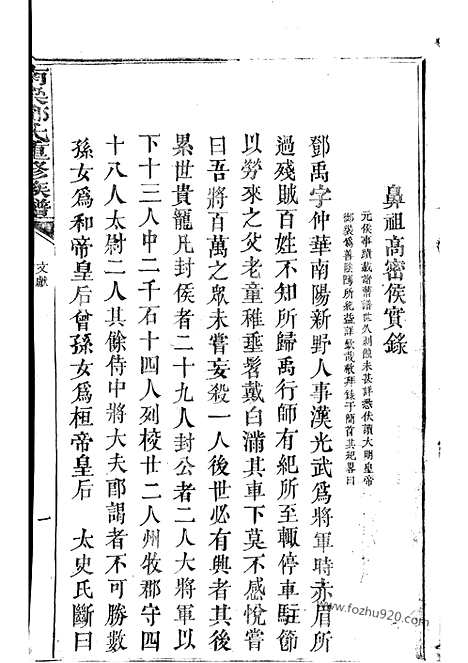 鼻祖高密侯實錄
元侯事蹟載諸舊譜世久剝蝕未甚詳悉伏讀大明皇帝
御製為善陰隲所紀益詳欽哉敬拜錄于簡首其紀畧曰
鄧禹字仲華南陽新野人事漢光武為將軍時赤眉所
過殘賊百姓不知所歸禹行師有紀所至輒停車駐節
以勞來之父老童稚垂髫戴白滿其車下莫不感悅嘗
曰吾將百萬之眾未嘗妄殺一人後世必有興者其後
累世貴寵凡封侯者二十九人封公者二人大將軍以
下十三人中二千石十四人列校廿二人州牧郡守四
十八人太尉二人其餘侍中將大夫郎謁者不可勝數
孫女為和帝皇后曾孫女為桓帝皇后 太史氏斷曰
氏重修族譜
文獻
一
www.fozhu920.com